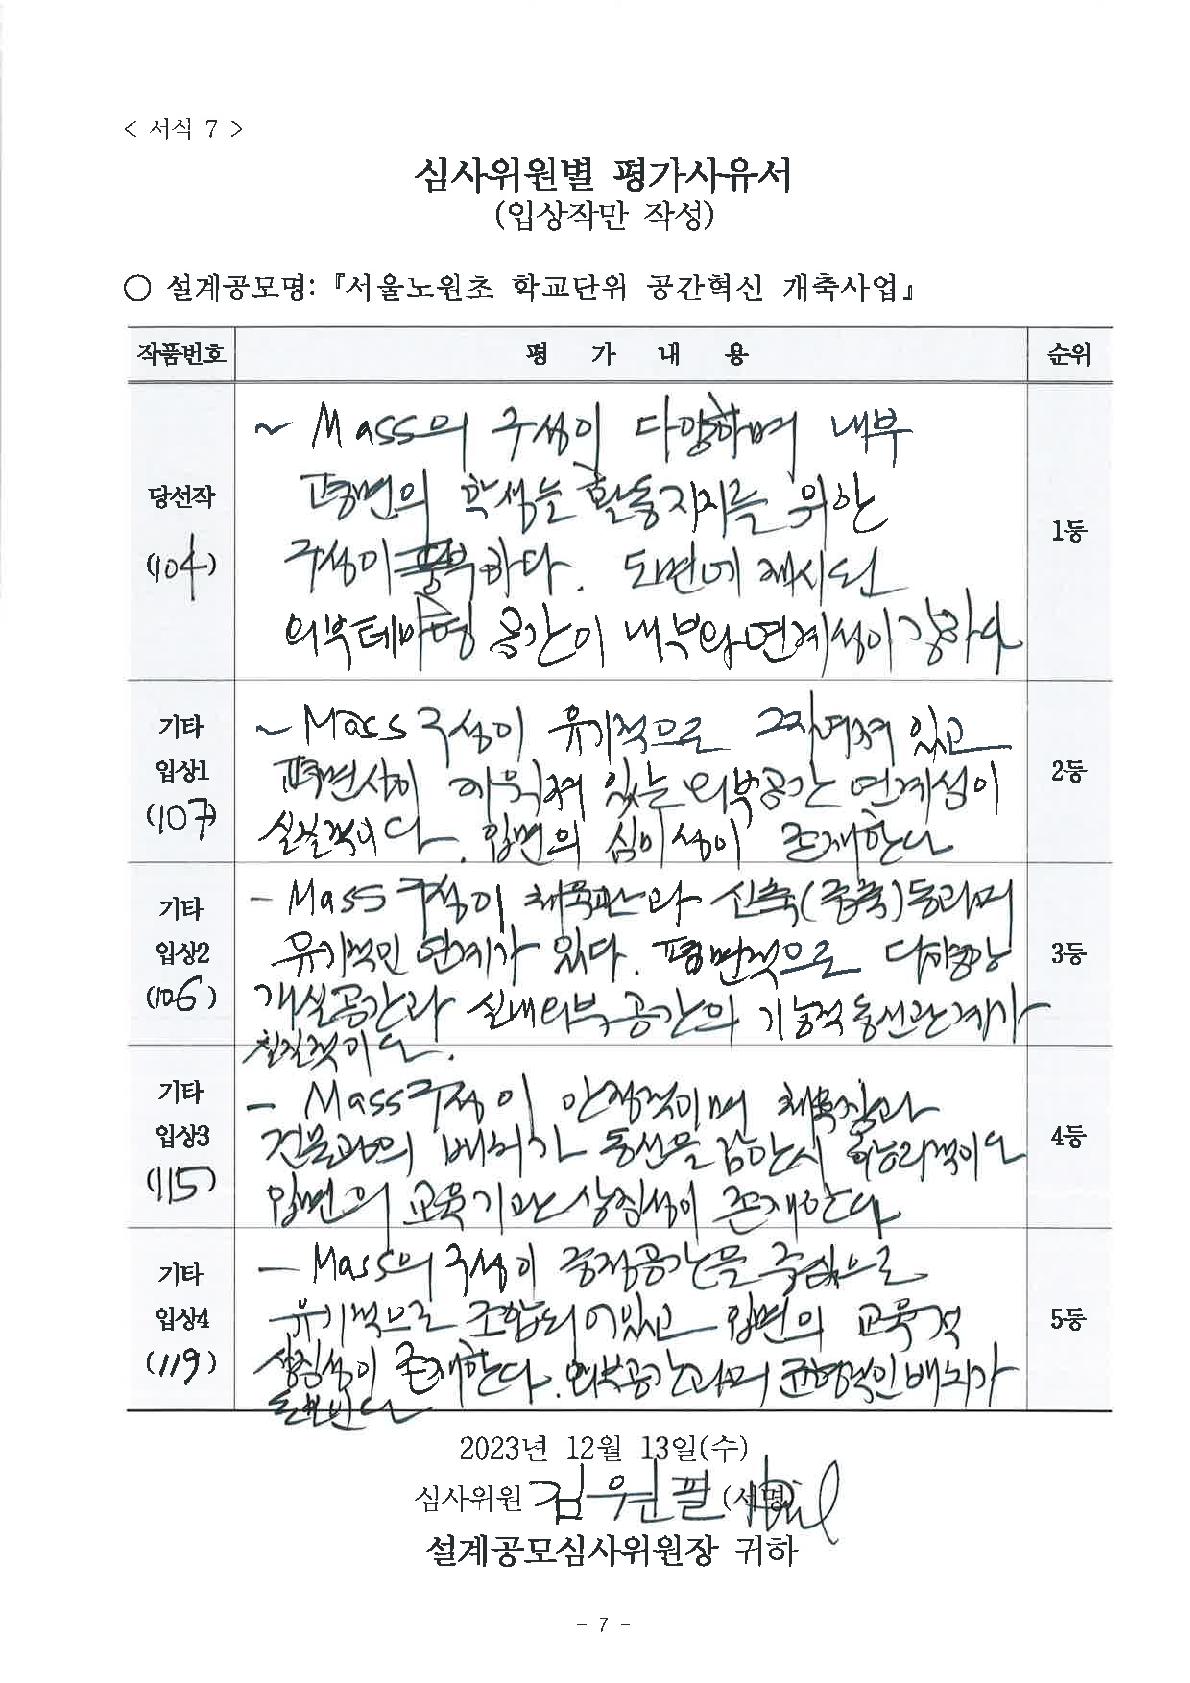 < 서식 7 >
심사위원별 평가사유서
(입상작만 작성)
○ 설계공모명:『서울노원초 학교단위 공간혁신 개축사업』
작품번호 평 가 내 용 순위
당선작
(104)
~ Mass의 구성이 다양하며 내부
평면의 학생들 활동지지를 위한
구성이 풍부하다. 도면에 제시된
외부테마형 공간이 내부와 연계성이 강하다
1등
기타
입상1
(107)
~ Mass 구성이 유기적으로 그려져 있고
평면상이 있는 외부공간 연계성이
실질적이다. 입면의 심미성이 존재한다
2등
기타
입상2
(106)
- Mass 구성이 체육관과 신축(증축)동과의
유기적인 연계가 있다. 평면적으로 다양한
개실공간과 실내외부 공간의 기능적 동선관계가
실질적이다.
3등
기타
입상3
(115)
- Mass구성이 안정적이며 체육장과
건물과의 배치가 동선을 감안시 합리적이다
입면의 교육기관 상징성이 존재한다
4등
기타
입상4
(119)
- Mass의 구성이 중정공간을 중심으로
유기적으로 조합되어있고 입면의 교육적
상징성이 존재한다. 외부공간과의 균형적인 배치가
돋보인다
5등
2023년 12월 13일(수)
심사위원 김원필 (서명)
설계공모심사위원장 귀하
- 7 -